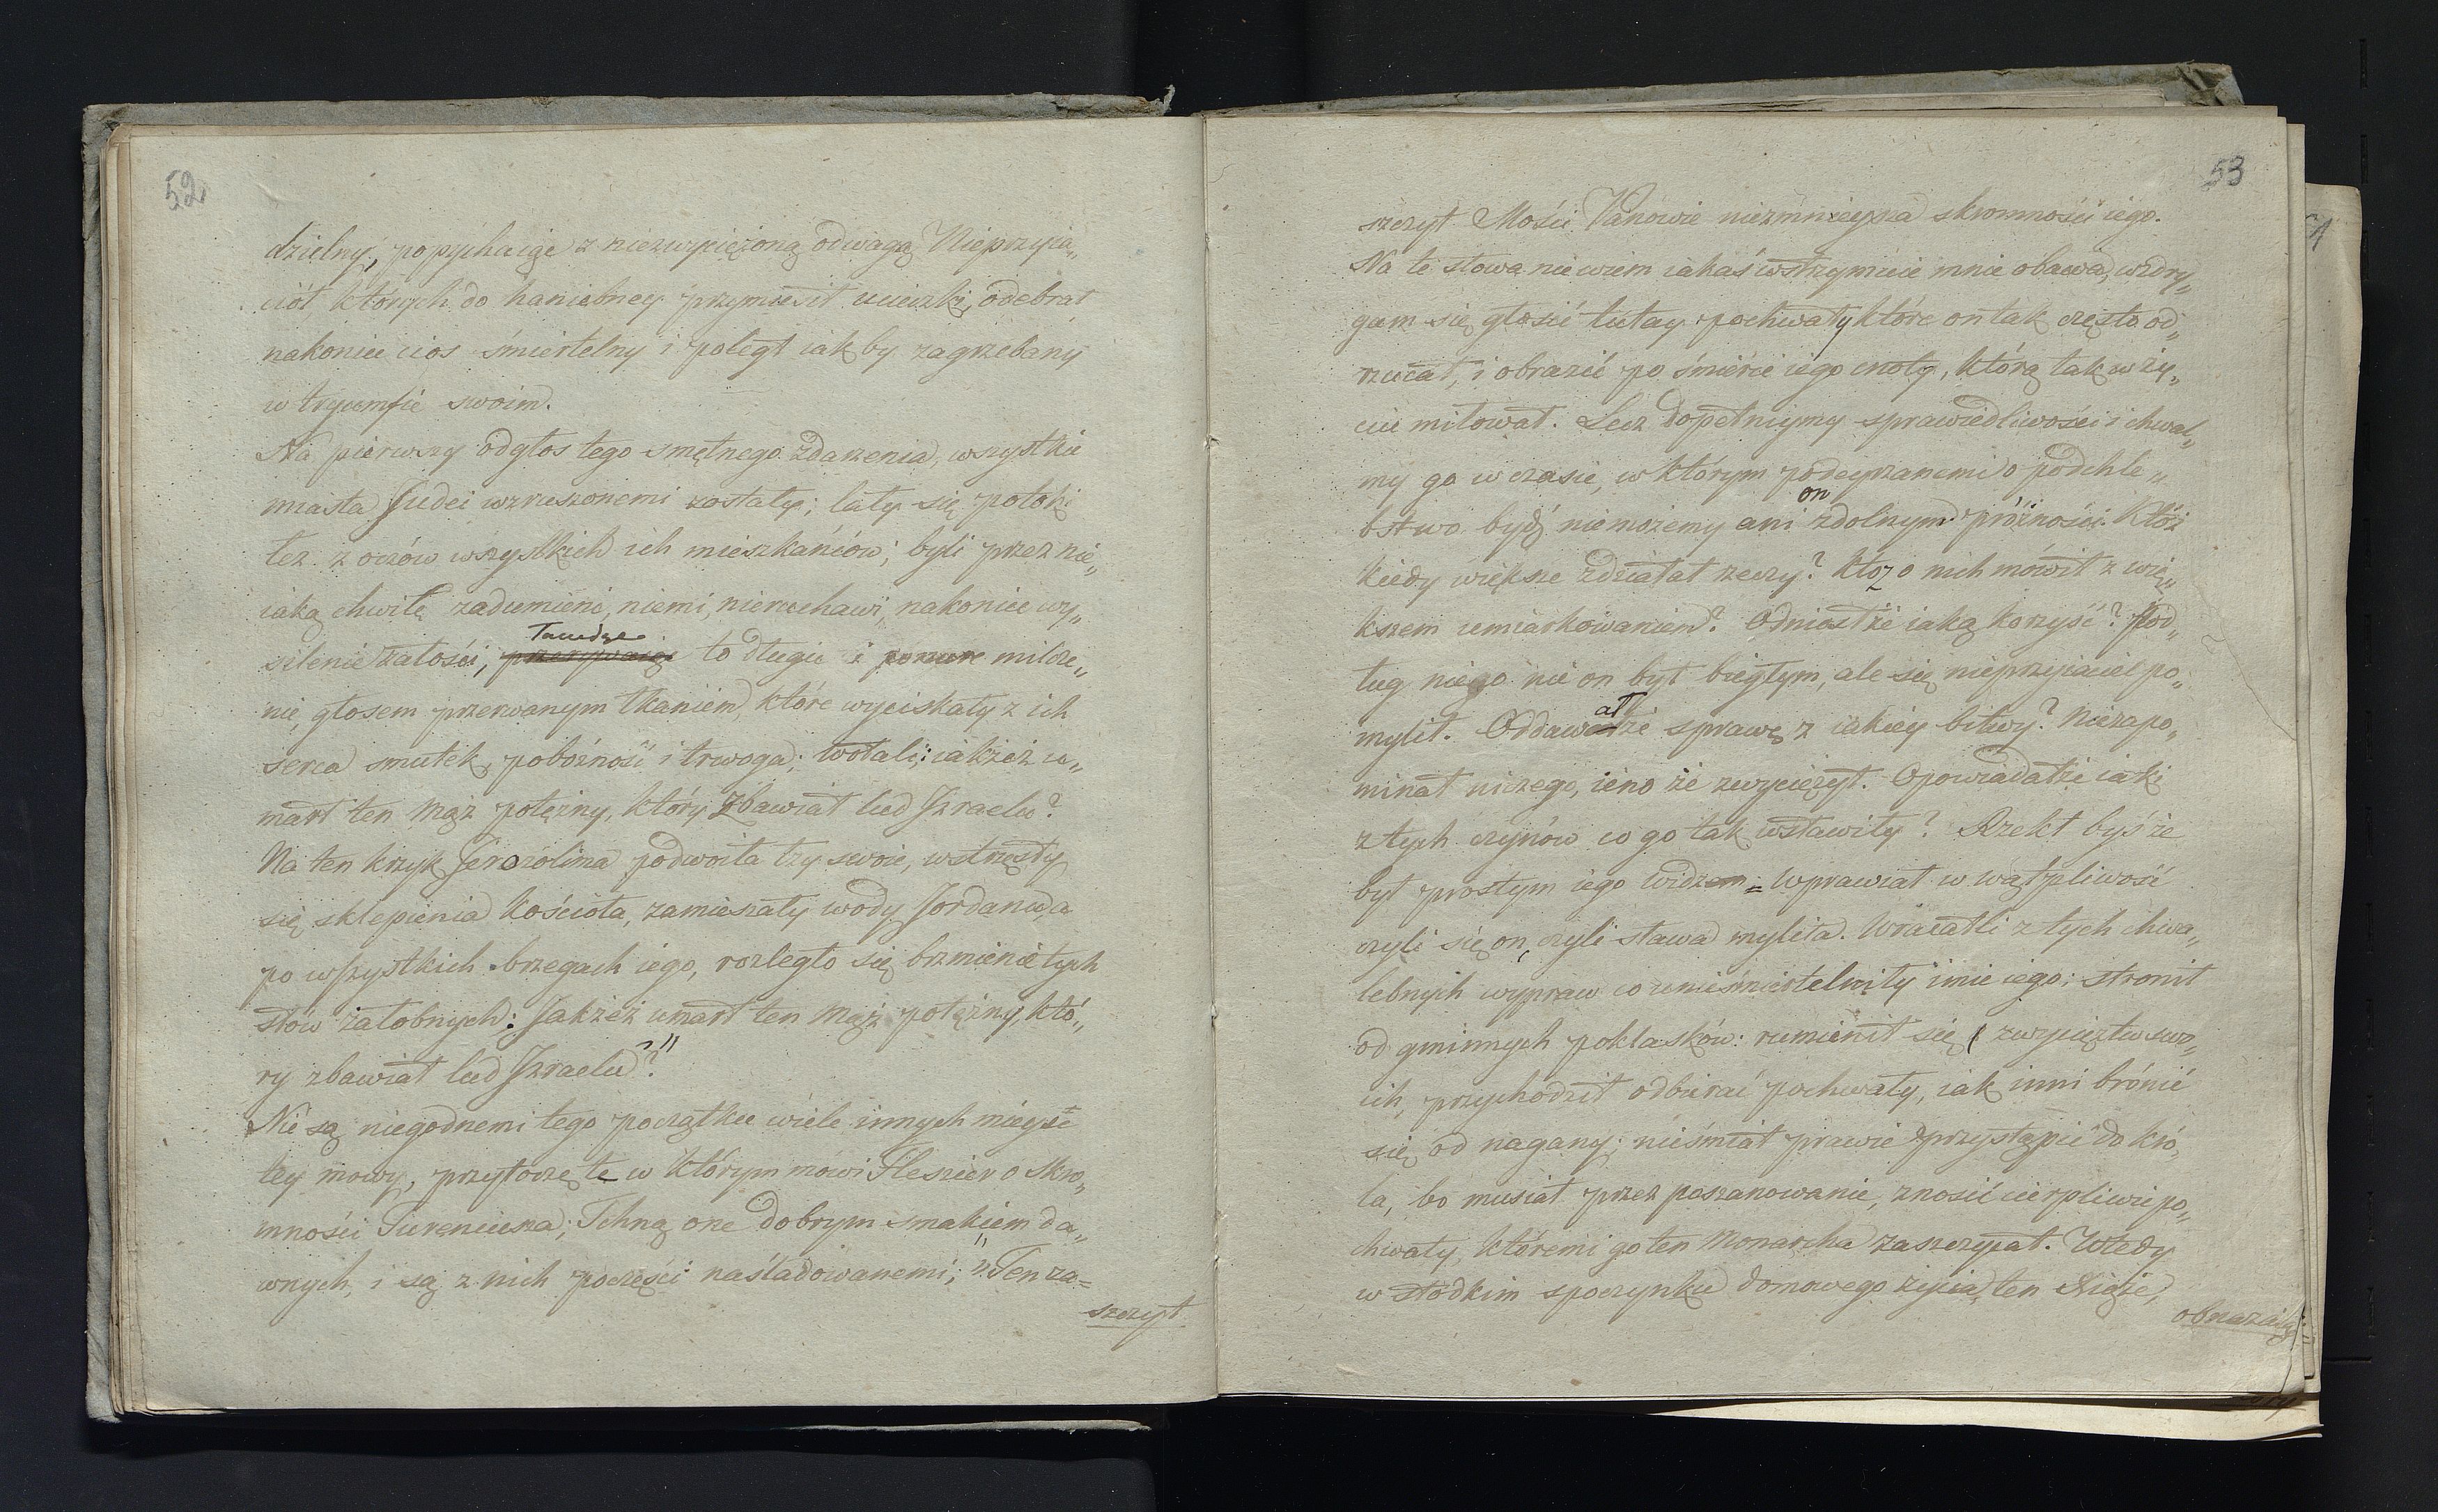 52
dzielny, popychaiąc z niezwyciężoną odwagą Nieprzyia„
ciół, których do haniebney przymusił ucieczki, odebrał
nakoniec cios śmiertelny i poległ iak by zagrzebany
w tryumfie swoim.
Na pierwszy odgłos tego smętnego zdarzenia, wszystkie
miasta Judei wzruszonemi zostały; lały się potoki
łez z oczów wszystkich ich mieszkańców; byli przez nie„
iaką chwilę zadumieni, niemi, nieruchawi, nakoniec wy„
silenie żałości, przerywaiąc to długie i ponure milcze„
nie, głosem przerwanym łkaniem, które wyciskały z ich
serca smutek, pobożność i trwoga; wołali; iakżeż u„
marł ten mąż potężny, który zbawiał lud Izraelu?
Na ten krzyk Jerozolima podwoiła łzy swoie, wstrzęsły
się sklepienia kościoła, zamieszały wody Jordanu, a
po wszystkich brzegach iego, rozległo się brzmienie tych
słów żałobnych: Jakżeż umarł ten mąż potężny, któ„
ry zbawiał lud Izraelu?"
Nie są niegodnemi tego początku wiele innych mieysc
tey mowy, przytoczę te w którym mówi Fleszier o skro„
mności Tureniusza; Tchną one dobrym smakiem da„
wnych, i są z nich poczęści naśladowanemi; „Ten za=
szczyt
53
szczyt Mości Panowie niezmnieysza skromności iego.
Na te słowa nie wiem iakaś wstrzymuie mnie obawa, wzdry„
gam się głosić tutay pochwały które on tak często od„
rzucał, i obrazić po śmierci iego cnotę, którą tak w ży„
ciu miłował. Lecz dopełniymy sprawiedliwości i chwal„
my go w czasie, w którym podeyrzanemi o podchle„
on
bstwo bydź niemożemy ani zdolnym próżności. Któż
kiedy większe zdziałał rzeczy? któż o nich mówił z wię„
kszem umiarkowaniem? Odniosłże iaką korzyść? Pod„
ług niego nie on był biegłym, ale się nieprzyiaciel po„
mylił. Oddawałże sprawę z iakiey bitwy? niezapo„
minał niczego, ieno że zwyciężył. Opowiadałże iaki
z tych czynów co go tak wsławiły? Rzekł byś że
był prostym iego widzem = Wprawiał w wątpliwość
czyli się on, czyli sława myliła. Wracałli z tych chwa„
lebnych wypraw co unieśmiertelniły imie iego; stronił
od gminnych poklasków: rumienił się z zwycięztw swo„
ich, przychodził odbierać pochwały, iak inni bronić
się od nagany; nieśmiał prawie przystąpić do kró„
la, bo musiał przez poszanowanie, znosić cierpliwie po„
chwały, któremi go ten Monarcha zaszczycał. Wtedy
w słodkim spoczynku domowego życia, ten Xiąże,
obnażaiąc